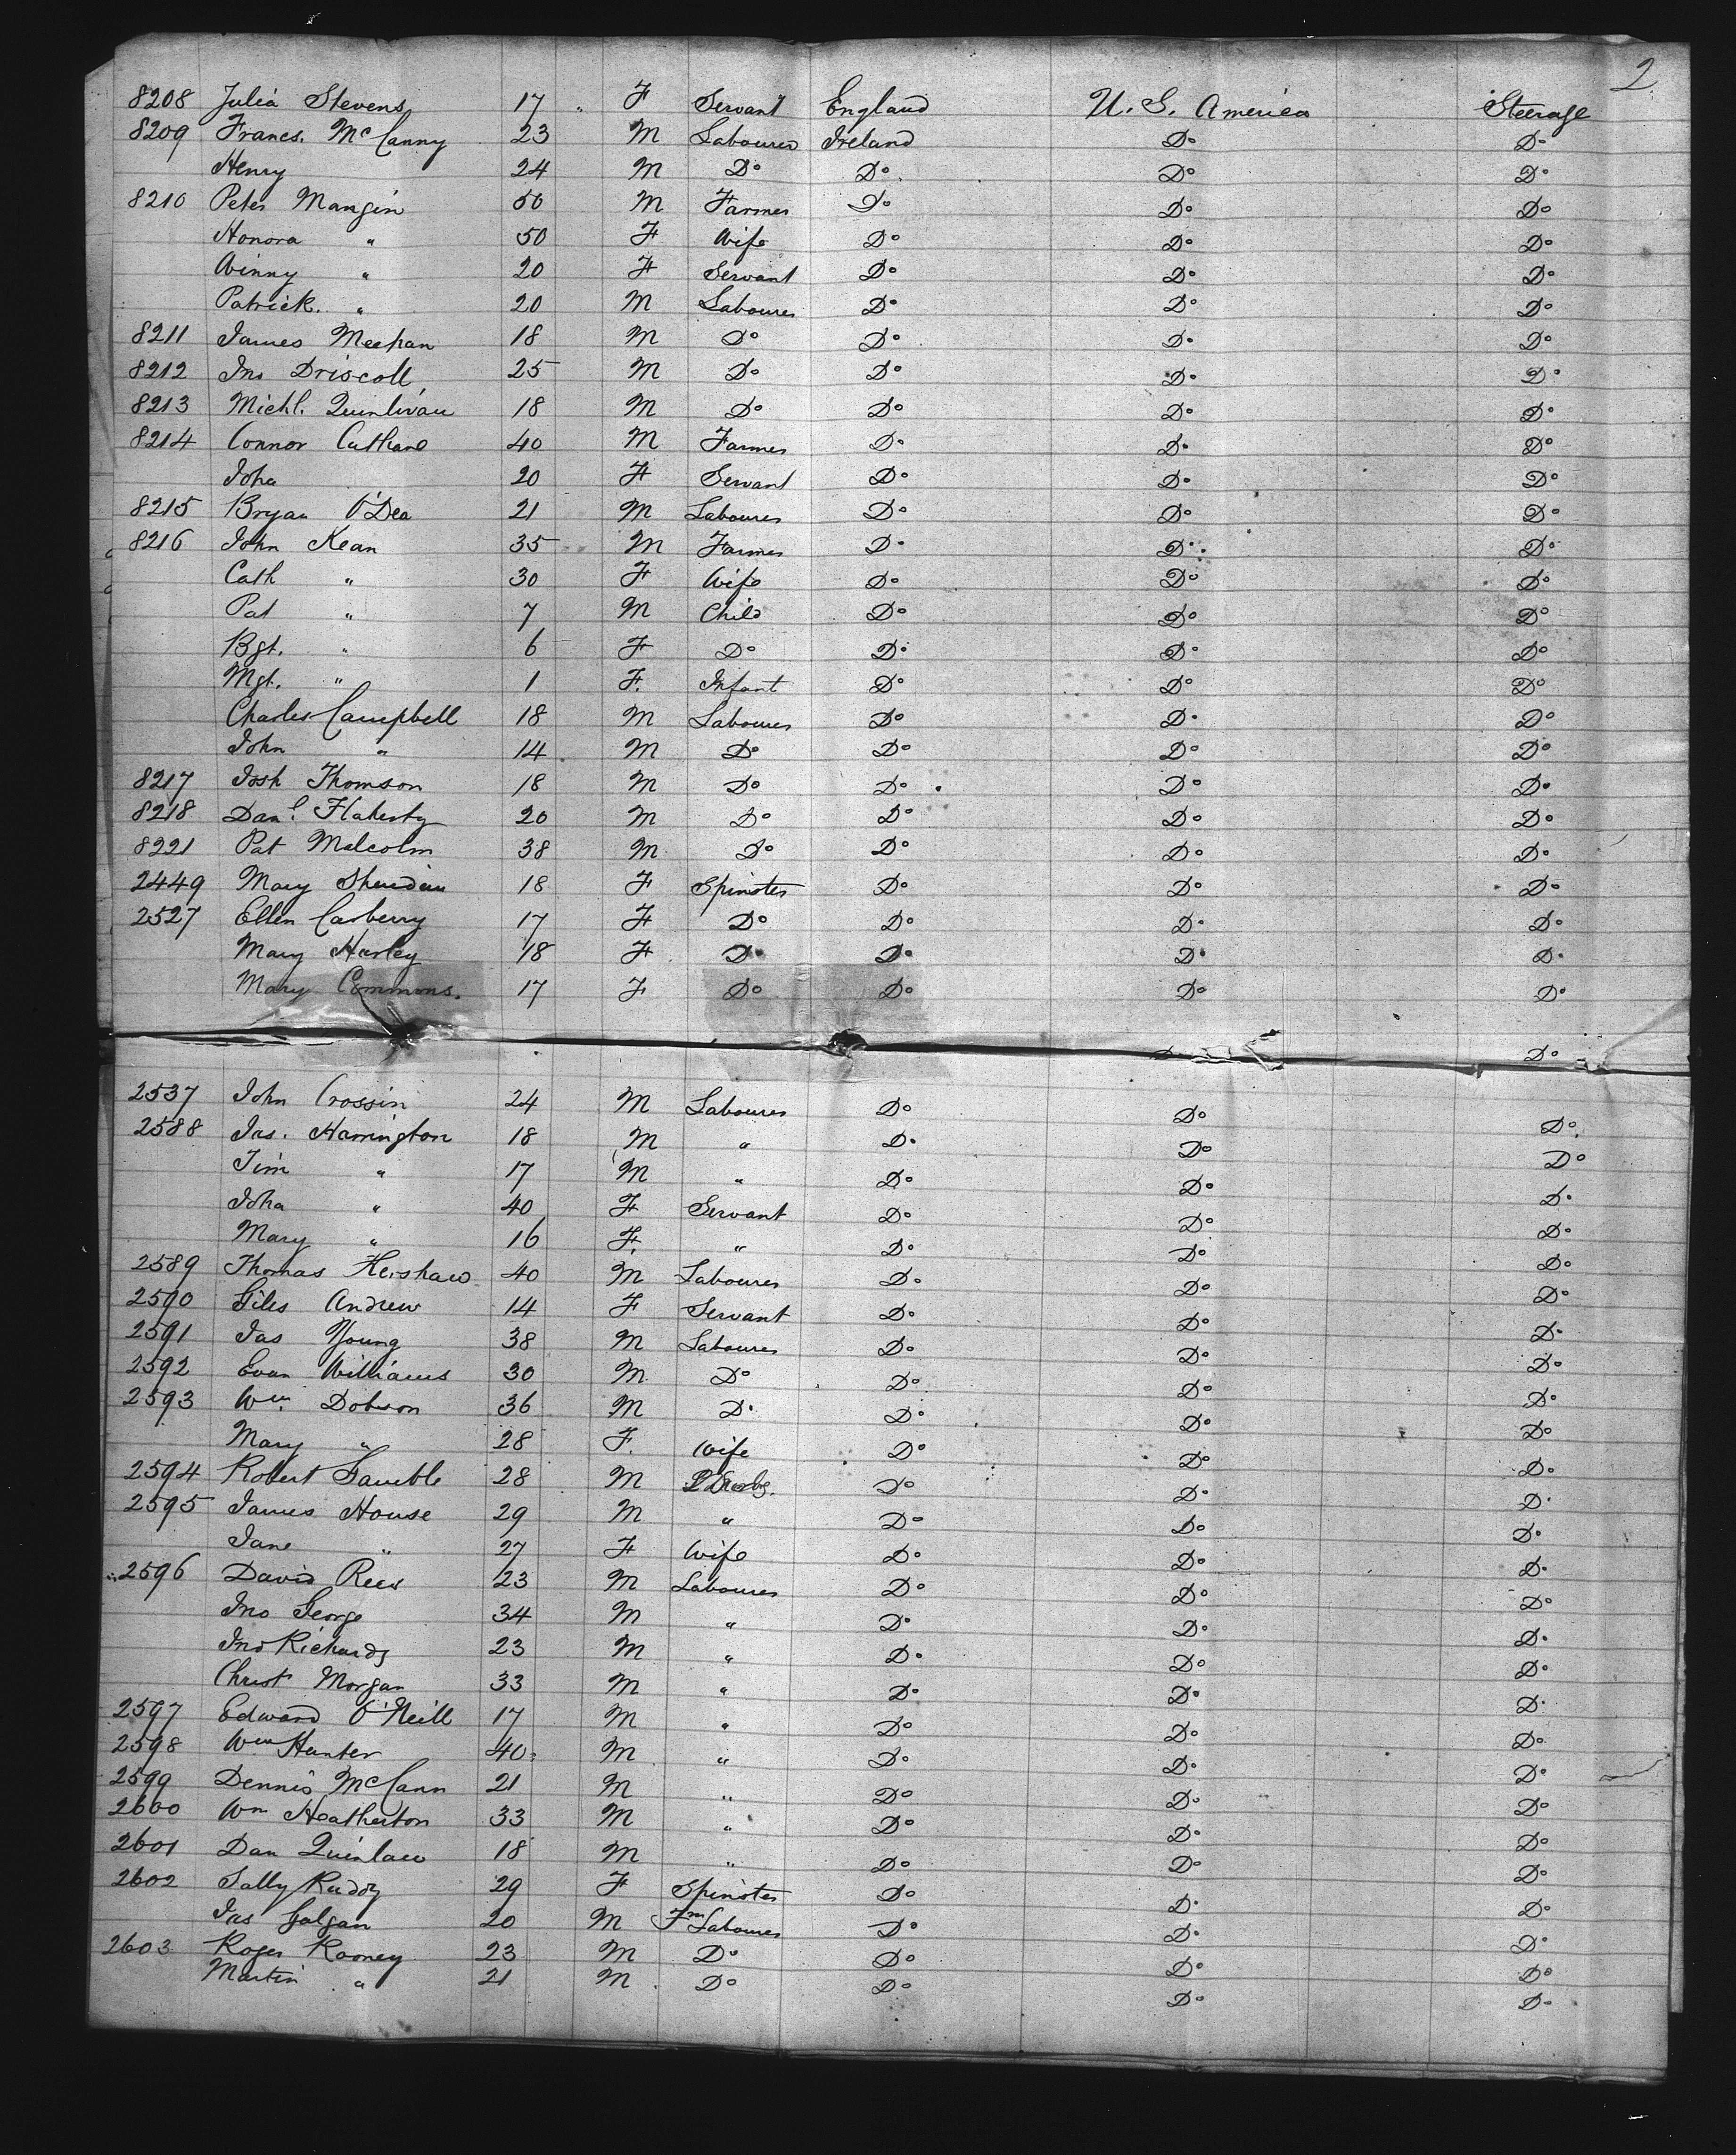 2
8208 Julia Stevens 17 " F Servant England U. S. America Steerage
8209 Francs. McCanny 23 M Labourer Ireland Do Do
Henry 24 M Do Do Do Do
8210 Peter Mangin 50 M Farmer Do Do Do
Honora " 50 F Wife Do Do Do
Winny " 20 F Servant Do Do Do
Patrick " 20 M Labourer Do Do Do
8211 James Meehan 18 M Do Do Do Do
8212 Jno Driscoll 25 M Do Do Do Do
8213 Michl. Quinlivan 18 M Do Do Do Do
8214 Connor Culhane 40 M Farmer Do Do Do
Joha 20 F Servant Do Do Do
8215 Bryan O'Dea 21 M Labourer Do Do Do
8216 John Kean 35 M Farmer Do Do Do
Cath " 30 F Wife Do Do Do
Pat " 7 M Child Do Do Do
Bgt. " 6 F Do Do Do Do
Mgt. " 1 F. Infant Do Do Do
Charles Campbell 18 M Labourer Do Do Do
John " 14 M Do Do Do Do
8217 Josh Thomson 18 M Do Do Do Do
8218 Danl. Flaherty 20 M Do Do Do Do
8221 Pat Malcolm 38 M Do Do Do Do
2449 Mary Sheridan 18 F Spinster Do Do Do
2527 Ellen Carberry 17 F Do Do Do Do
Mary Harley 18 F Do Do Do Do
Mary Commons. 17 F Do Do Do Do
Do Do
2537 John Crossin 24 M Labourer Do Do Do
2588 Jas. Harrington 18 M " Do Do Do
Tim " 17 M " Do Do Do
Joha " 40 F Servant Do Do Do
Mary " 16 F. " Do Do Do
2589 Thomas Hershaw 40 M Labourer Do Do Do
2590 Giles Andrew 14 F Servant Do Do Do
2591 Jas Young 38 M Labourer Do Do Do
2592 Evan Williams 30 M Do Do Do Do
2593 Wm. Dobson 36 M Do Do Do Do
Mary " 28 F. Wife Do Do Do
2594 Robert Gamble 28 M Do Do Do
2595 James House 29 M " Do Do Do
Jane " 27 F Wife Do Do Do
2596 David Rees 23 M Labourer Do Do Do
Jno George 34 M " Do Do Do
Jno Richards 23 M " Do Do Do
Christ Morgan 33 M " Do Do Do
2597 Edward O'Neill 17 M " Do Do Do
2598 Wm Hunter 40 M " Do Do Do
2599 Dennis McCann 21 M " Do Do Do
2600 Wm Heatherton 33 M " Do Do Do
2601 Dan Quinlan 18 M " Do Do Do
2602 Sally Ruddy 29 F Spinster Do Do Do
Jas Galgan 20 M Fm Labourer Do Do Do
2603 Roger Rooney 23 M Do Do Do Do
Martin " 21 M Do Do Do Do